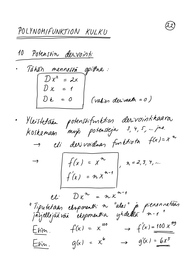 22
POLYNOMIFUNKTION KULKU
10 Potenssin derivointi
· Tähän mennessä opittua:
Dx² = 2x
Dx = 1
Dc = 0 (vakion derivaatta = 0)
· Yleistetään potenssifunktion derivointikaava
koskemaan myös potensseja 3, 4, 5, ... jne.
→ eli derivoidaan funktiota f(x) = xⁿ
→ f(x) = xⁿ , n = 2, 3, 4, ...
f'(x) = nxⁿ⁻¹
eli Dxⁿ = nxⁿ⁻¹
* Tiputetaan eksponentti n "alas" ja pienennetään
jäljelle eksponenttia yhdellä n-1 "
Esim. f(x) = x¹⁰⁰ → f'(x) = 100x⁹⁹
Esim. g(x) = x⁶ → g'(x) = 6x⁵